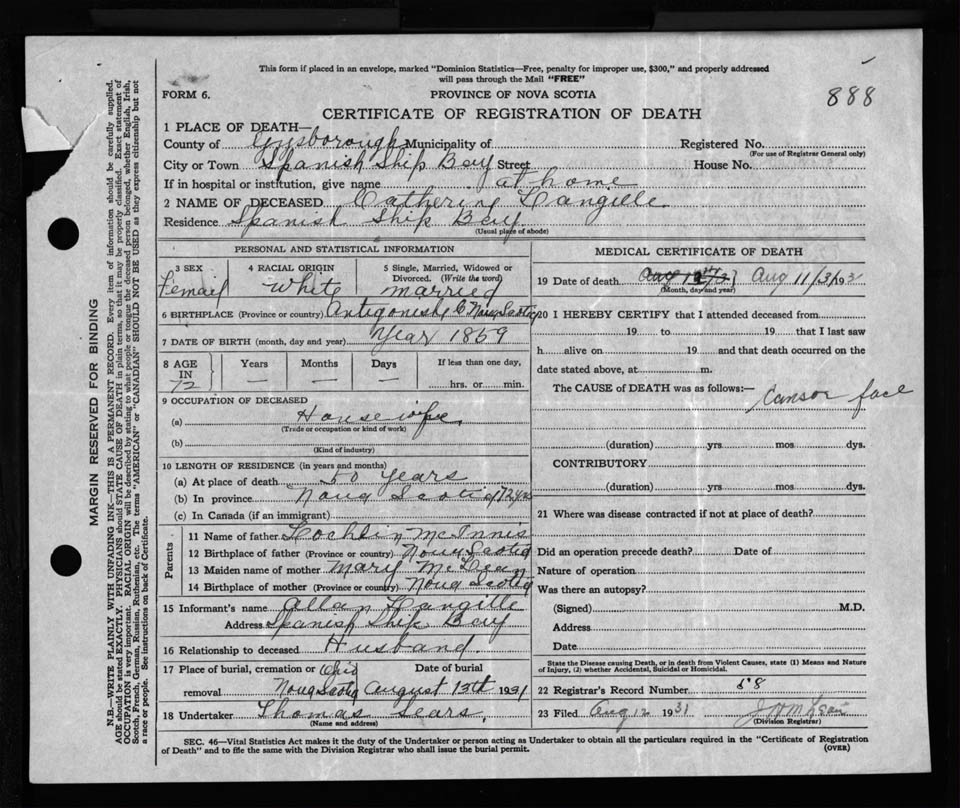 This form if placed in an envelope, marked "Dominion Statistics—Free, penalty for improper use, $300," and properly addressed
will pass through the Mail "FREE"
888
FORM 6.
PROVINCE OF NOVA SCOTIA
CERTIFICATE OF REGISTRATION OF DEATH
1 PLACE OF DEATH—
County of Gysborough Municipality of Registered No.
(For use of Registrar General only)
City or Town Spanish Ship Bay Street House No.
If in hospital or institution, give name at home
2 NAME OF DECEASED Catherine Langille
Residence Spanish Ship Bay
(Usual place of abode)
PERSONAL AND STATISTICAL INFORMATION
3 SEX 4 RACIAL ORIGIN 5 Single, Married, Widowed or
Divorced. (Write the word)
Femail White married
6 BIRTHPLACE (Province or country) Antigonish Nova Scotia
7 DATE OF BIRTH (month, day and year) Year 1859
8 AGE IN Years Months Days If less than one day,
72 — — — hrs. or min.
9 OCCUPATION OF DECEASED
(a) House wife
(Trade or occupation or kind of work)
(b)
(Kind of industry)
10 LENGTH OF RESIDENCE (in years and months)
(a) At place of death 50 years
(b) In province Nova Scotia 72 yrs
(c) In Canada (if an immigrant)
Parents
11 Name of father Lochlin McInnis
12 Birthplace of father (Province or country) Nova Scotia
13 Maiden name of mother Mary McLean
14 Birthplace of mother (Province or country) Nova Scotia
15 Informant's name Allan Langille
Address Spanish Ship Bay
16 Relationship to deceased Husband
17 Place of burial, cremation or Date of burial
removal Nova Scotia August 13th 1931
18 Undertaker Thomas Sears,
(Name and address)
MEDICAL CERTIFICATE OF DEATH
19 Date of death Aug 11/31 193
(Month, day and year)
20 I HEREBY CERTIFY that I attended deceased from
19 to 19 that I last saw
h alive on 19 and that death occurred on the
date stated above, at m.
The CAUSE of DEATH was as follows:—
Cansor face
(duration) yrs mos dys.
CONTRIBUTORY
(duration) yrs. mos. dys.
21 Where was disease contracted if not at place of death?
Did an operation precede death? Date of
Nature of operation
Was there an autopsy?
(Signed) M.D.
Address
Date
State the Disease causing Death, or in death from Violent Causes, state (1) Means and Nature
of Injury, (2) whether Accidental, Suicidal or Homicidal.
22 Registrar's Record Number 58
23 Filed Aug 12 1931
(Division Registrar)
SEC. 46—Vital Statistics Act makes it the duty of the Undertaker or person acting as Undertaker to obtain all the particulars required in the "Certificate of Registration
of Death" and to file the same with the Division Registrar who shall issue the burial permit.
(OVER)
MARGIN RESERVED FOR BINDING
N.B.—WRITE PLAINLY WITH UNFADING INK—THIS IS A PERMANENT RECORD. Every item of information should be carefully supplied.
AGE should be stated EXACTLY. PHYSICIANS should STATE CAUSE OF DEATH in plain terms, so that it may be properly classified. Exact statement of
OCCUPATION is very important. RACIAL ORIGIN will be described by stating to what people or tongue the deceased person belonged, whether English, Irish,
Scotch, French, German, Russian, Ruthenian, etc. The terms "AMERICAN" or "CANADIAN" SHOULD NOT BE USED as they express citizenship but not
a race or people. See instructions on back of Certificate.